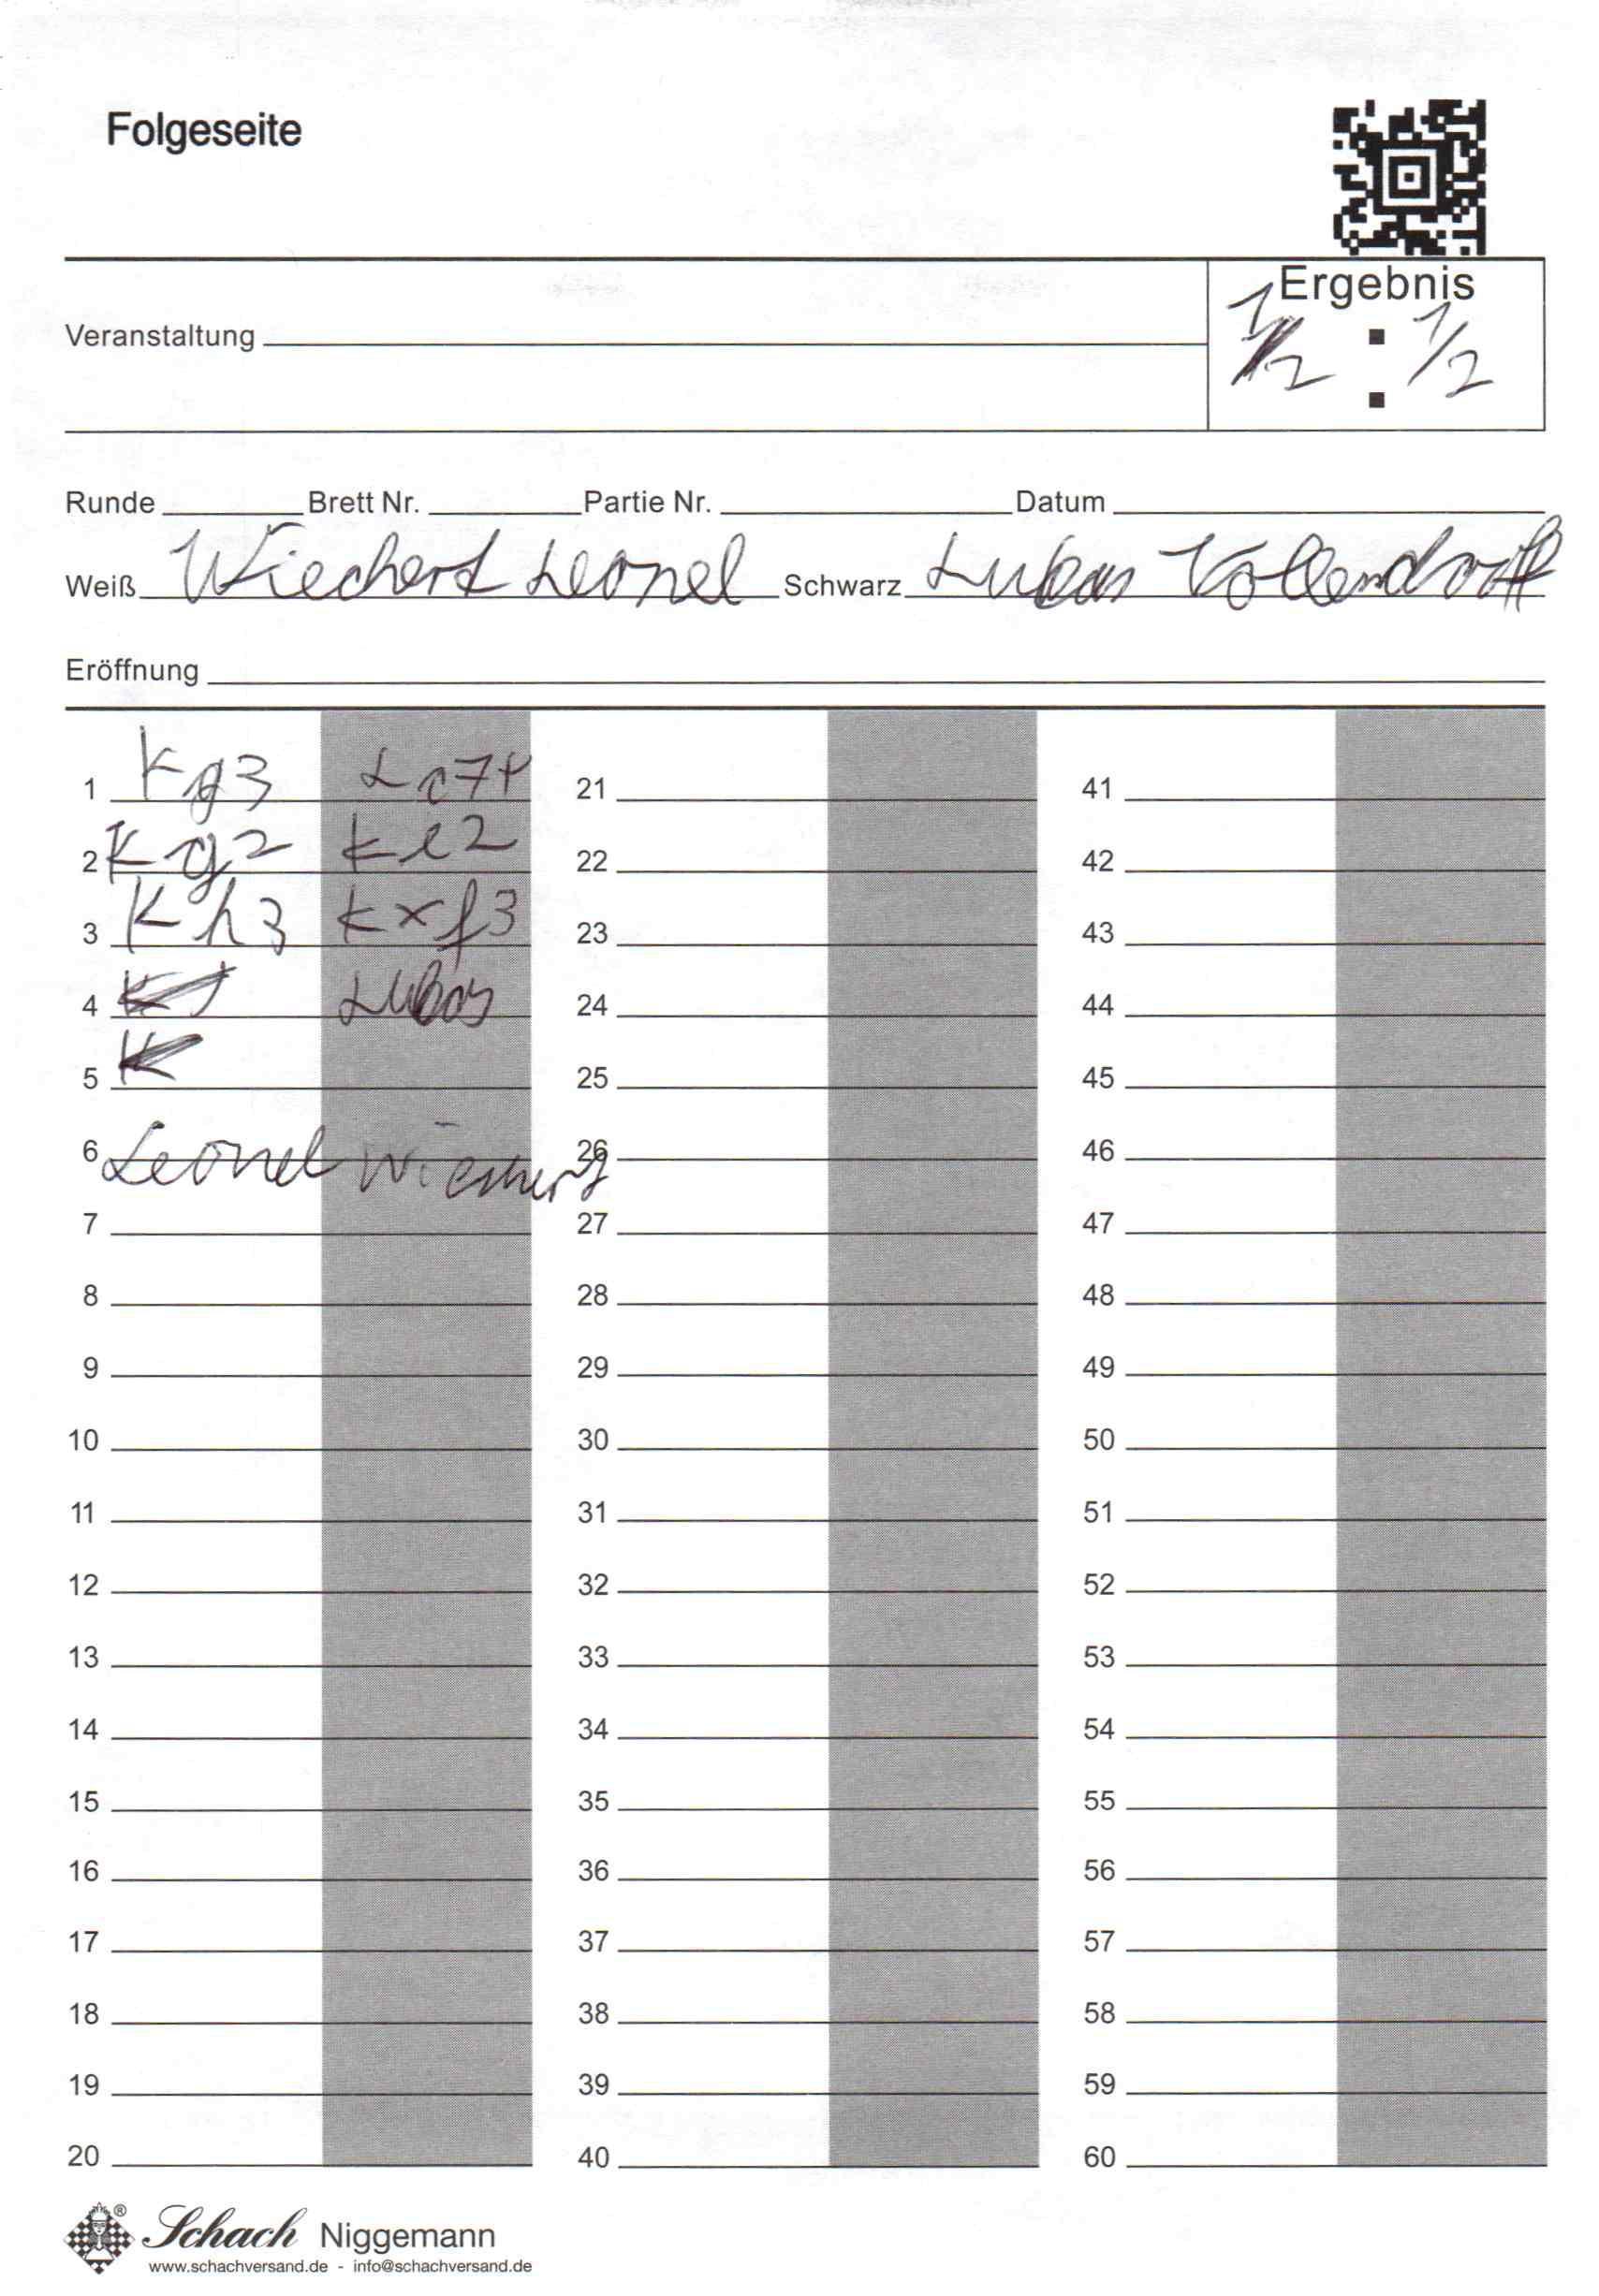 Folgeseite
Ergebnis
Veranstaltung
1/2 : 1/2
Runde Brett Nr. Partie Nr. Datum
Weiß Wiechert Leonel Schwarz Lukas Vollendorff
Eröffnung
1 Kg3 Lc7+ 21 41
2 Kg2 Ke2 22 42
3 Kh3 Kxf3 23 43
4 Lukas 24 44
5 25 45
6 Leonel Wiechert 26 46
7 27 47
8 28 48
9 29 49
10 30 50
11 31 51
12 32 52
13 33 53
14 34 54
15 35 55
16 36 56
17 37 57
18 38 58
19 39 59
20 40 60
Schach Niggemann
www.schachversand.de - info@schachversand.de